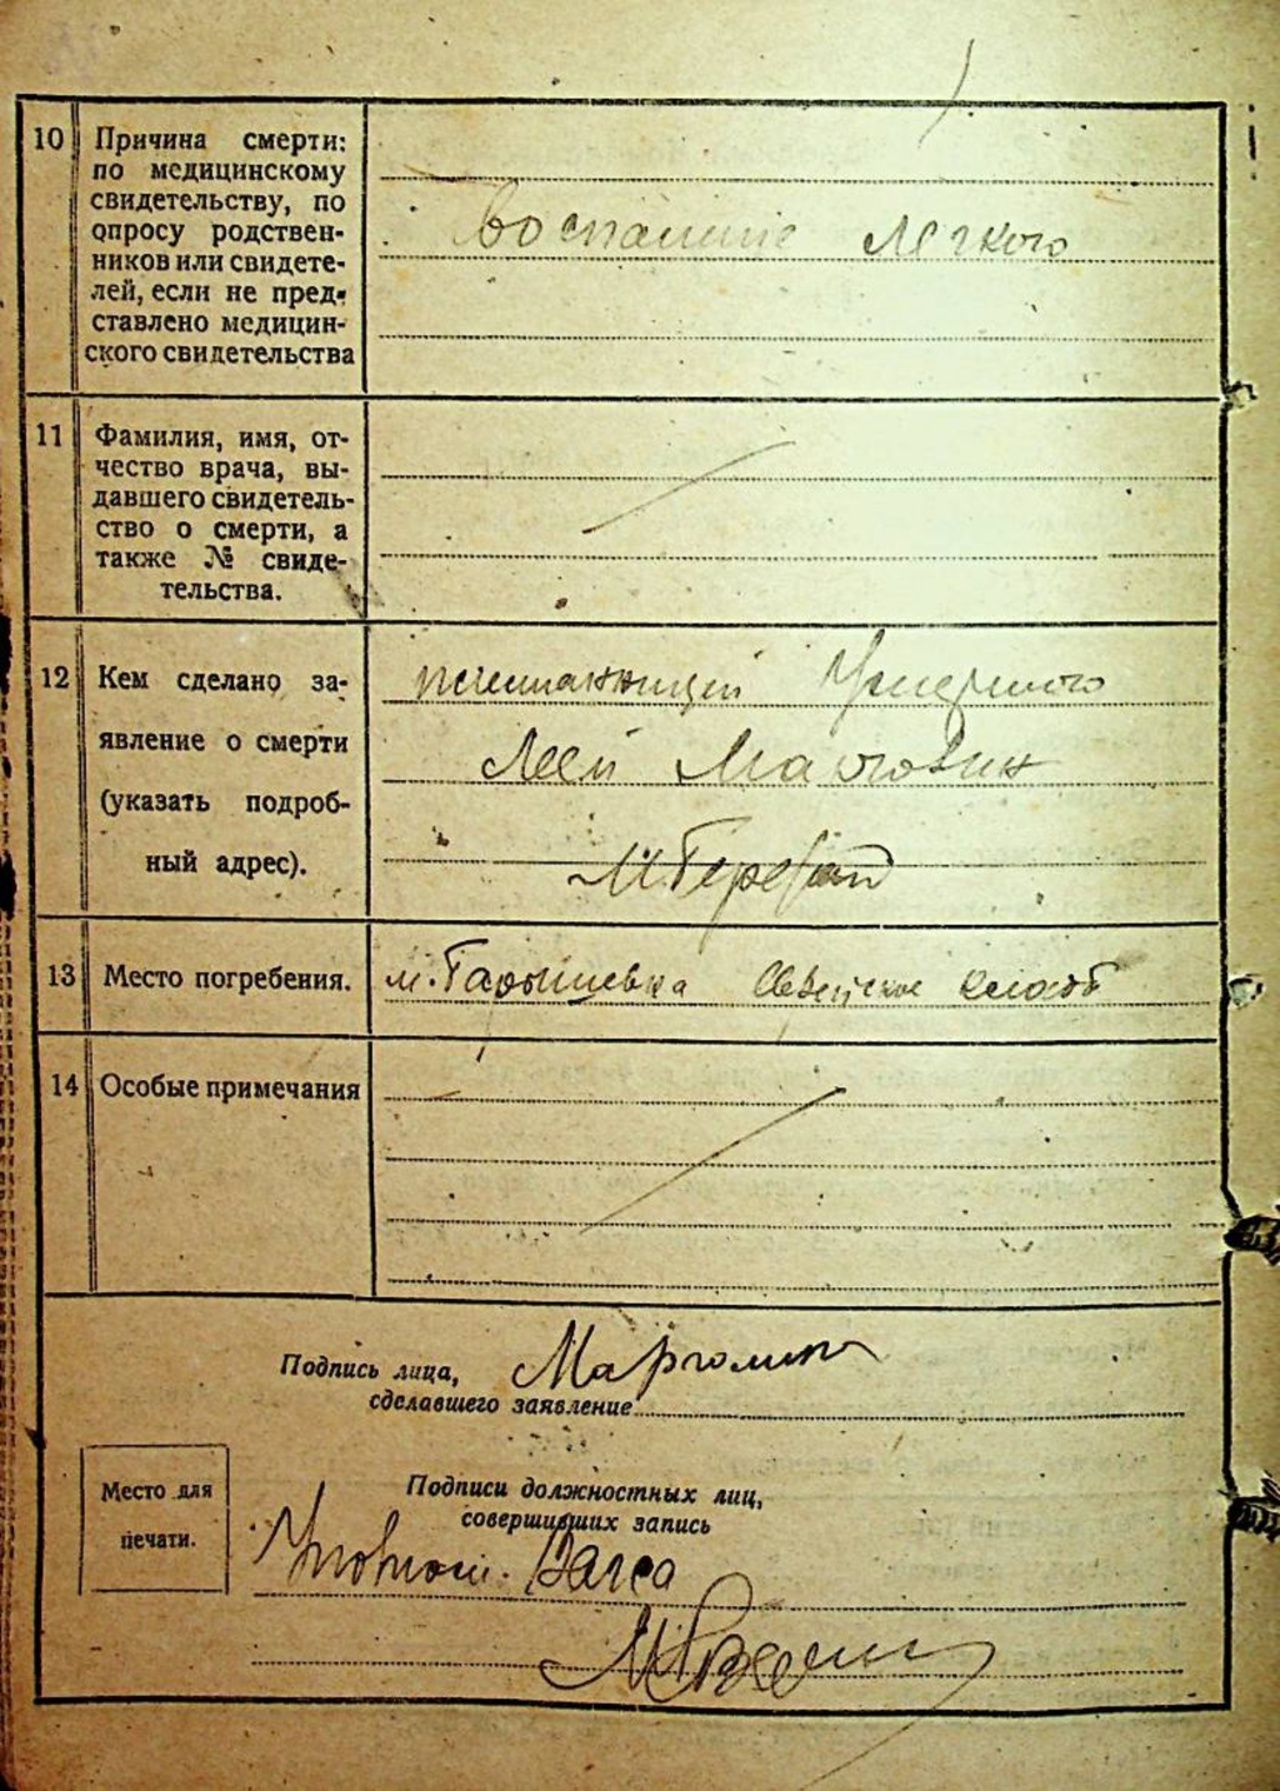 10
Причина смерти:
по медицинскому
свидетельству, по
опросу родствен-
ников или свидете-
лей, если не пред-
ставлено медицин-
ского свидетельства
Воспаление легкого
11
Фамилия, имя, от-
чество врача, вы-
давшего свидетель-
ство о смерти, а
также № свиде-
тельства.
12
Кем сделано за-
явление о смерти
(указать подроб-
ный адрес).
Умершего
13
Место погребения.
м. Еврейское кладб
14
Особые примечания
Подпись лица,
сделавшего заявление
Марголина
Место для
печати.
Подписи должностных лиц,
совершивших запись
Загса